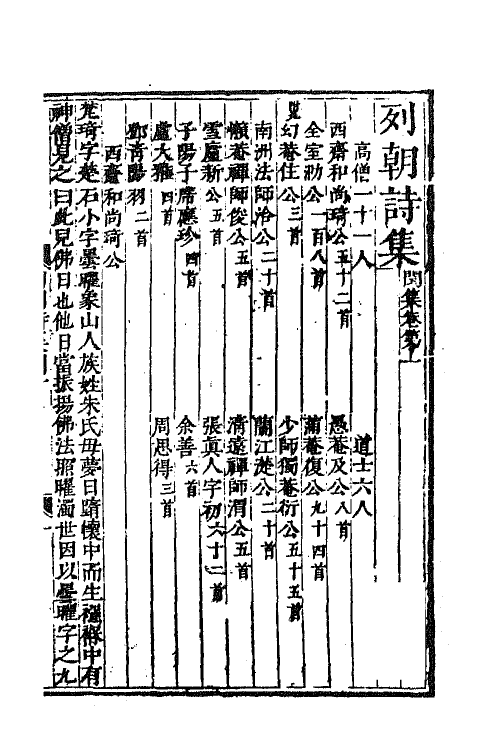 列朝詩集 閏集卷第一
高僧一十一人 道士六人
西齋和尚琦公五十二首 愚菴及公八首
全室泐公一百八首 蒲菴復公九十四首
見幻菴住公三首 少師獨菴衍公五十五首
南洲法師洽公二十首 蘭江楚公二十首
懶菴禪師俊公五首 清遠禪師渭公五首
雪廬新公五首 張眞人宇初六十二首
子陽子席應珍四首 余善六首
盧大雅四首 周思得三首
鄧青陽羽二首
西齋和尚琦公
梵琦字楚石小字曇曜象山人族姓朱氏母夢日墮懷中而生襁褓中有
神僧見之曰此兒佛日也他日當振揚佛法照曜濁世因以曇曜字之九